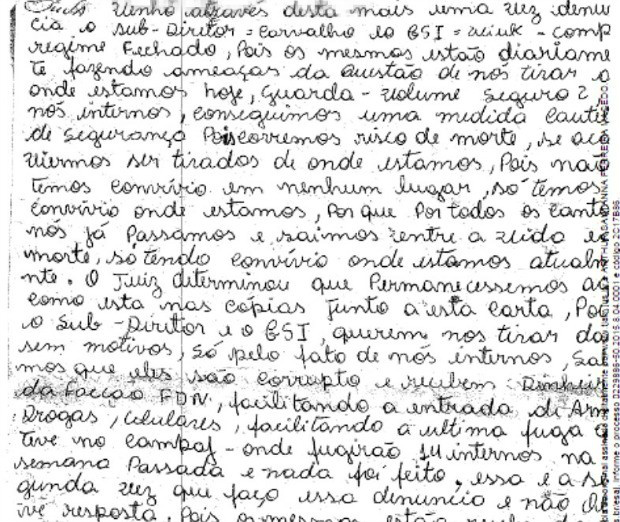 venho através desta mais uma vez denu
cia o sub-Diretor = carvalho e o GSI = = comp
regime Fechado, Pois os mesmos estão diariame
te fazendo ameaças da questão de nos tirar
onde estamos hoje, guarda-volume seguro 2,
nós internos, conseguimos uma midida cautel
de segurança Pois corremos risco de morte, se aco
viermos ser tirados de onde estamos, Pois não
temos convívio em nenhum lugar, só temos
convívio onde estamos, Por que Por todos os canto
nós já Passamos e saímos entre a vida e
morte, só tendo convívio onde estamos atualm
nte. O Juiz determinou que Permanecessemos aq
como esta nas cópias junto a esta carta, Poq
o Sub-Diretor e o GSI, querem nos tirar da
sem motivos, só pelo fato de nós internos sab
mos que eles são corrupto e recebem Dinheir
da Facção FDN, facilitando a entrada di Arm
Drogas, celulares, facilitando a ultima fuga
teve no compaj - onde fugirão internos na
semana Passada e nada foi feito, essa e a se
gunda vez que faço essa denuncia e não
ive resposta, Pois os mesmos estão